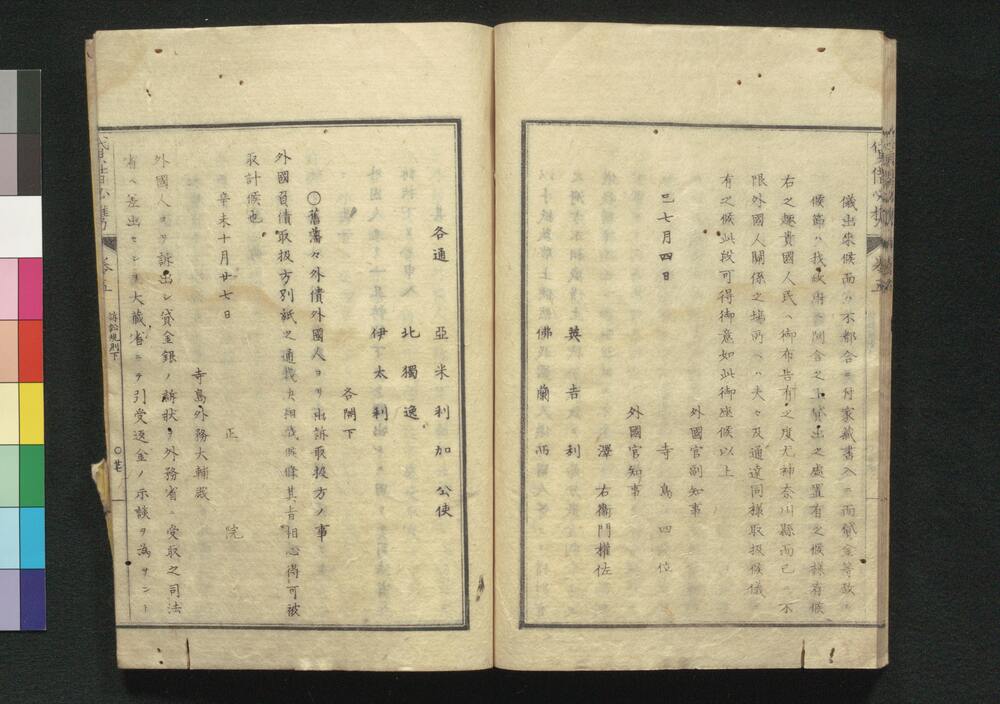 儀出来候而ハ不都合ニ付家藏書入ニ而貸金等致
候節ハ我政府ヘ問合之上貸出之處置有之候樣有候
右之趣貴國人民ヘ御布告有之度尤神奈川縣而已
限外國人關係之場所ハ夫々及通達同樣取扱候儀
有之候此段可得御意如此御座候以上
巳七月四日
外國官副知事
寺島四位
外國官知事
澤右衛門權佐
英吉利
佛蘭西
亞米利加公使
各通
北獨逸
伊太利
各閣下
○舊藩々外債外國人ヨリ出訴取扱方ノ事
外國負債取扱方別紙之通裁決相成候條其旨相心得可被
取計候也
辛未十月廿七日
正院
寺島外務大輔殿
外國人ヨリ訴出シ貸金銀ノ訴状ヲ外務省ニ受取之司法
省ヘ差出セシヲ大藏省ニテ引受返金ノ示談ヲ為サント
巻五
訴訟規則下